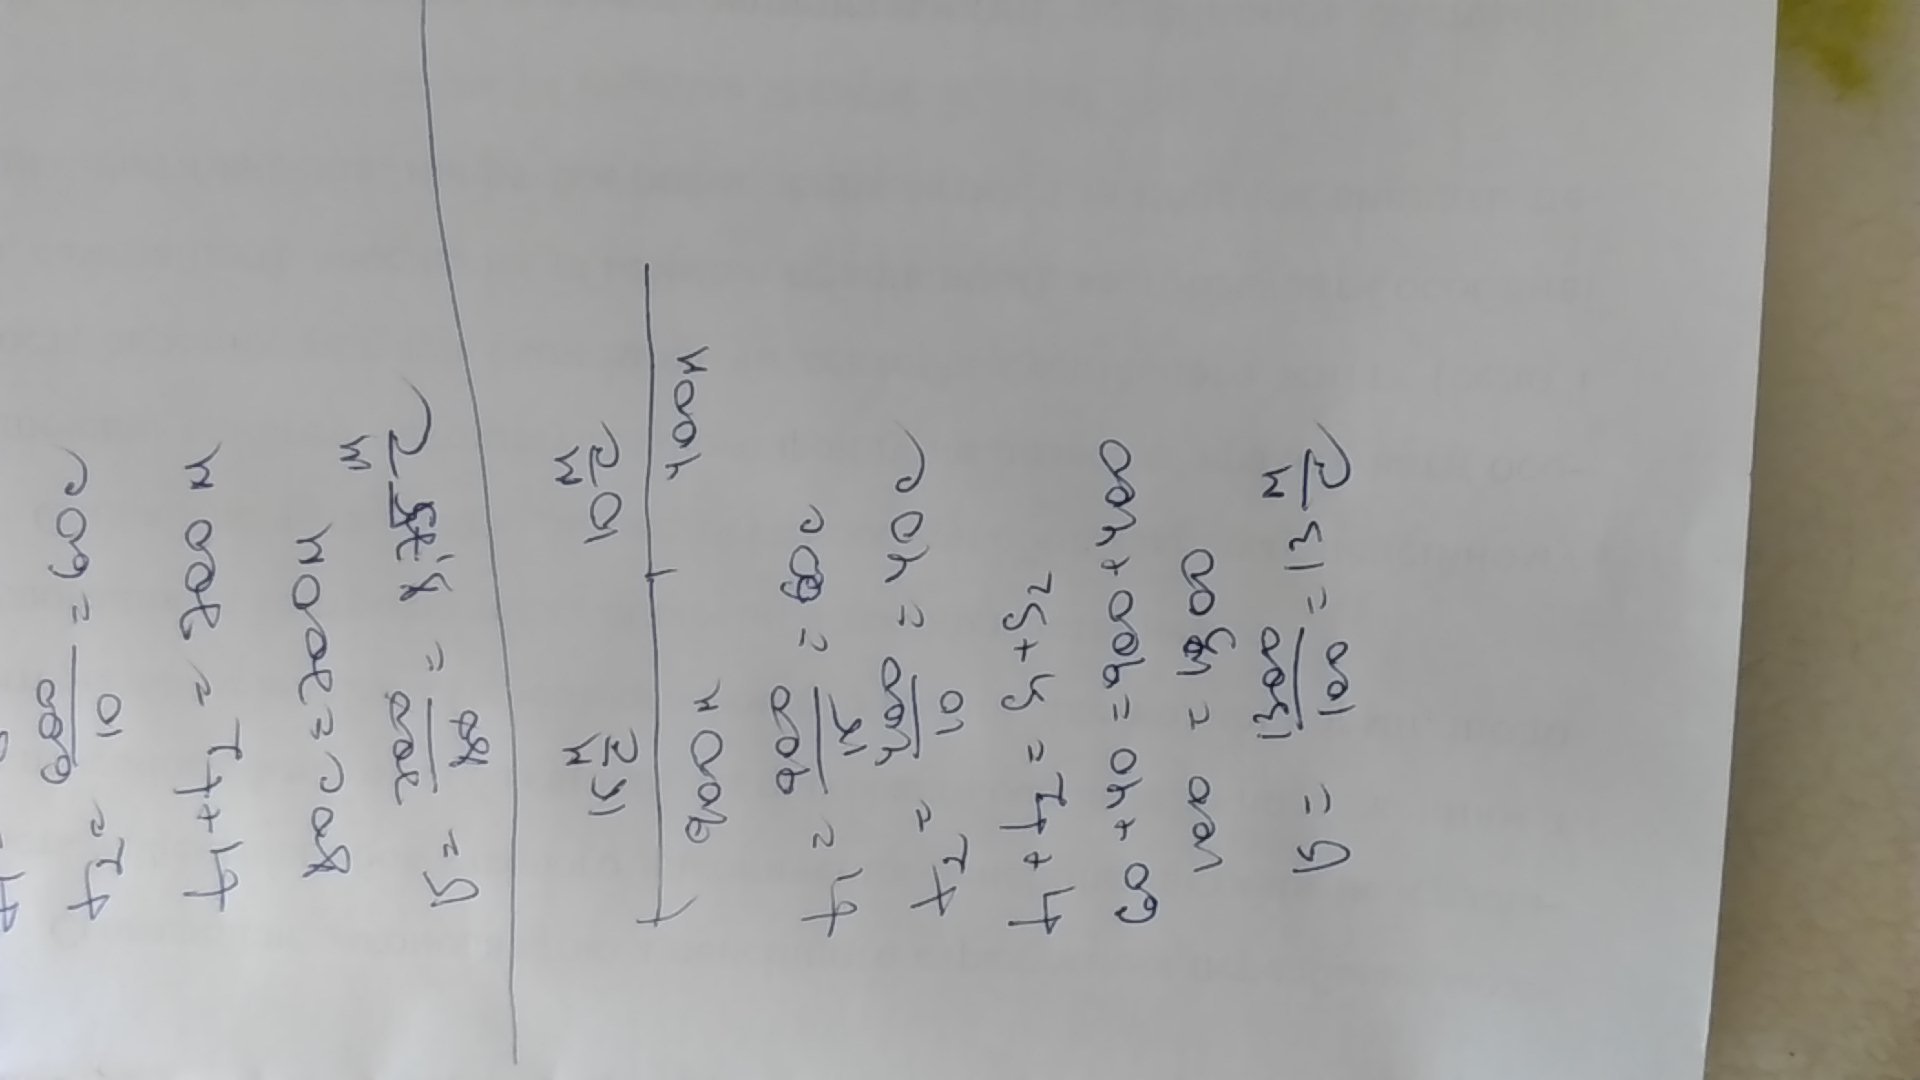 t₂ = 600/10 = 60 с
t₁+t₂ = 700 м
80 с = 700 м
υ = 700/80 = 8,75 м/с
15 м/с 10 м/с
900 м 400 м
t₁ = 900/15 = 60 с
t₂ = 400/10 = 40 с
t₁ + t₂ = S₁ + S₂
60 + 40 = 900 + 400
100 = 1300
υ = 1300/100 = 13 м/с